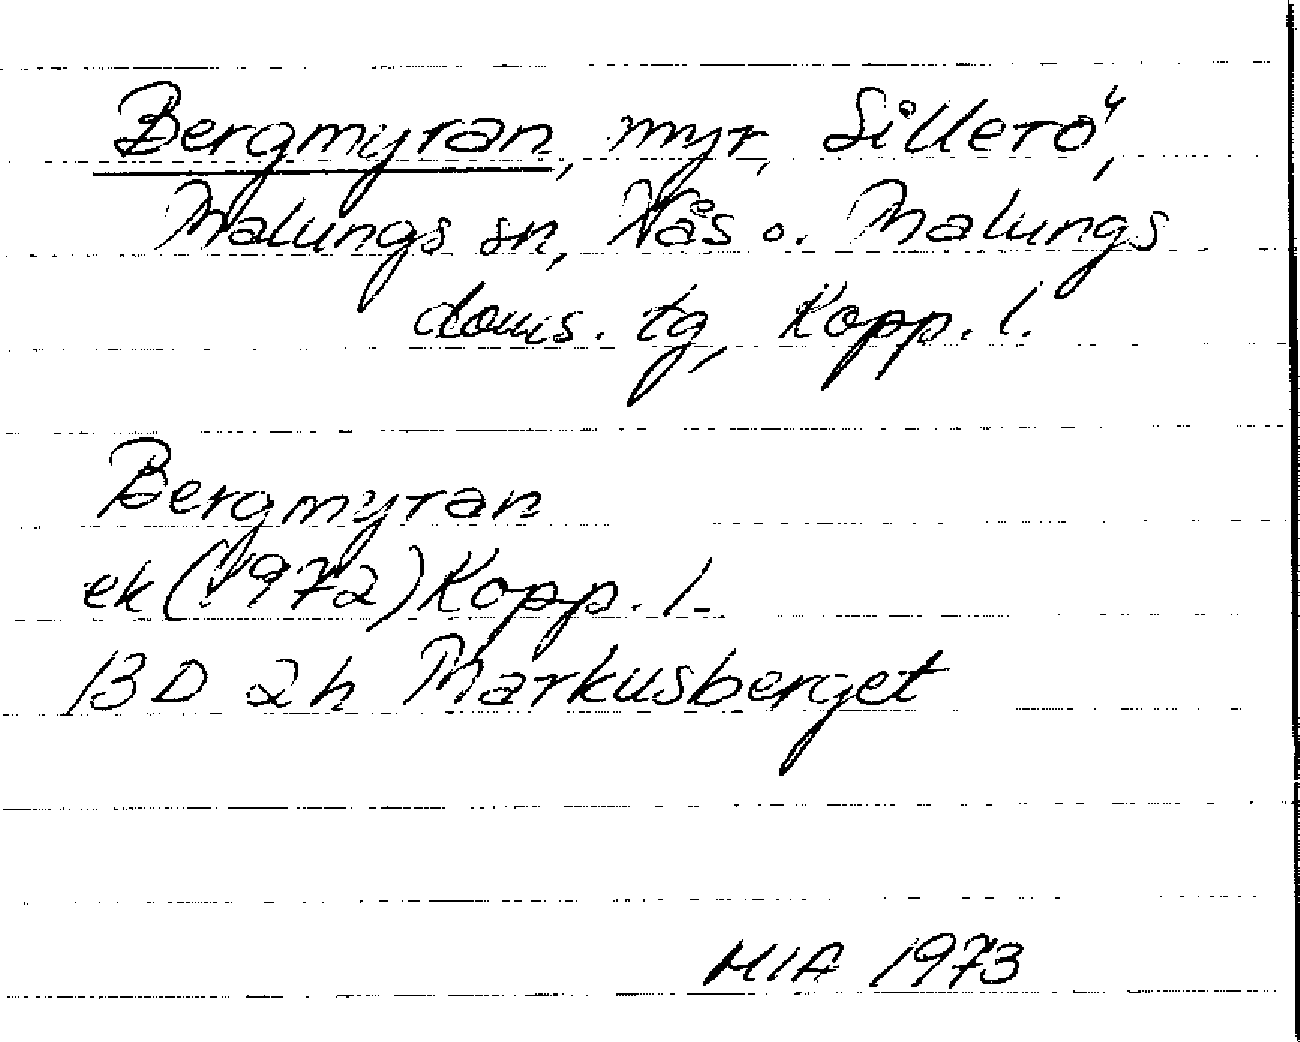 Bergmyran, myr, Sillerö,
Malungs sn, Nås o. Malungs
doms. tg, Kopp. l.
Bergmyran
ek (1972) Kopp. l.
13 D 2h Markusberget
MIA 1973